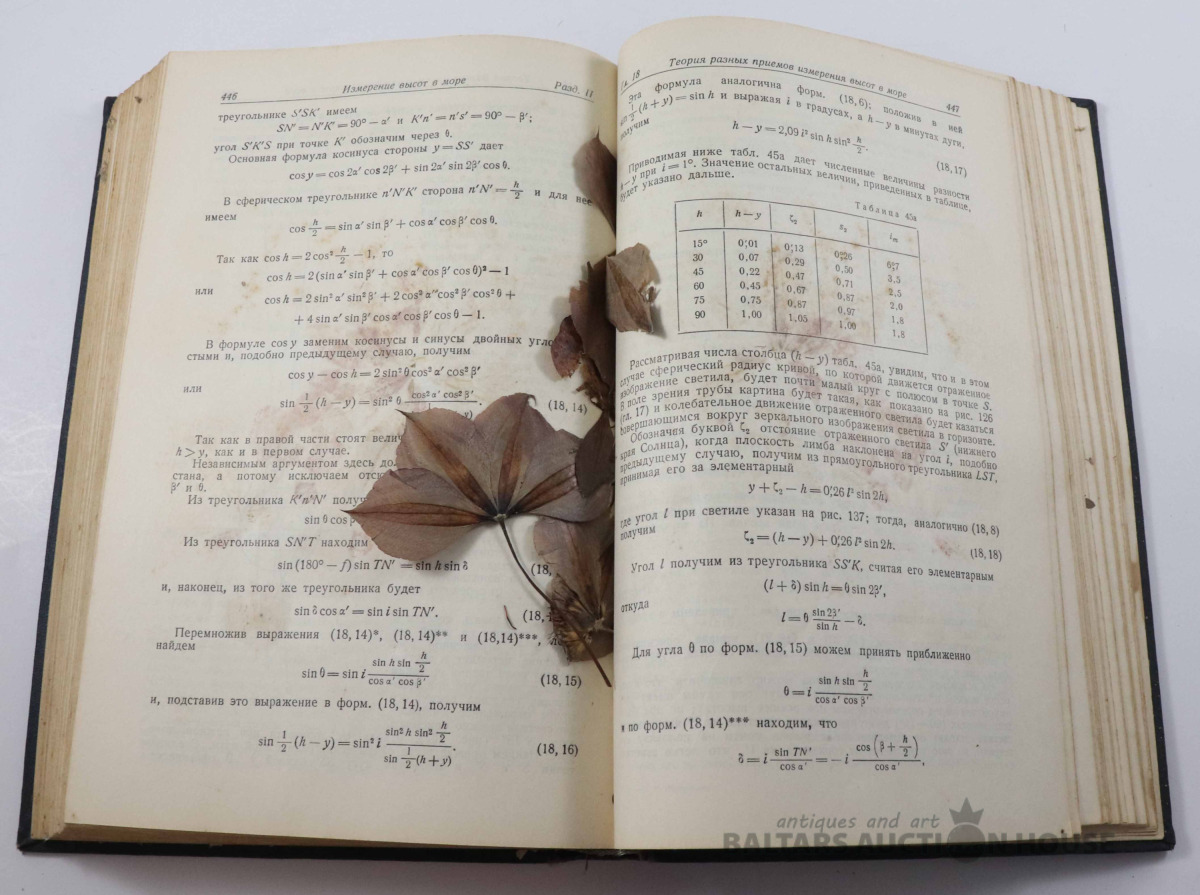 446 Измерение высот в море Разд. II
треугольнике S′SK′ имеем
SN′ = N′K′ = 90° — α′ и K′n′ = n′s′ = 90° — β′;
угол S′K′S при точке K′ обозначим через θ.
Основная формула косинуса стороны y = SS′ дает
cos y = cos 2α′ cos 2β′ + sin 2α′ sin 2β′ cos θ.
В сферическом треугольнике n′N′K′ сторона n′N′ = h/2 и для нее
имеем
cos h/2 = sin α′ sin β′ + cos α′ cos β′ cos θ.
Так как cos h = 2 cos² h/2 — 1, то
cos h = 2 (sin α′ sin β′ + cos α′ cos β′ cos θ)² — 1
или
cos h = 2 sin² α′ sin² β′ + 2 cos² α′ cos² β′ cos² θ +
+ 4 sin α′ sin β′ cos α′ cos β′ cos θ — 1.
В формуле cos y заменим косинусы и синусы двойных
стыми и, подобно предыдущему случаю, получим
cos y — cos h = 2 sin² θ cos² α′ cos² β′
или
sin 1/2 (h — y) = sin² θ cos² α′ cos² β′ (18, 14)
Так как в правой части стоят
h > y, как и в первом случае.
Независимым аргументом здесь
стана, а потому исключаем
β′ и θ.
Из треугольника K′n′N′
sin θ cos
Из треугольника SN′T находим
sin (180° — f) sin TN′ = sin h sin δ (18,
и, наконец, из того же треугольника будет
sin δ cos α′ = sin i sin TN′. (18,
Перемножив выражения (18, 14)*, (18, 14)** и (18,14)***,
найдем
sin θ = sin i sin h sin h/2 / cos α′ cos β′ (18, 15)
и, подставив это выражение в форм. (18, 14), получим
sin 1/2 (h — y) = sin² i sin² h sin² h/2 / sin 1/2 (h + y). (18, 16)
18 Теория разных приемов измерения высот в море 447
Эта формула аналогична форм. (18, 6); положив в ней
1/2 (h + y) = sin h и выражая i в градусах, а h — y в минутах дуги,
получим
h — y = 2,09 i² sin h sin² h/2. (18, 17)
Приводимая ниже табл. 45а дает численные величины разности
h — y при i = 1°. Значение остальных величин, приведенных в таблице,
будет указано дальше.
Таблица 45а
h h — y ζ₂ s₂ iₘ
15° 0′,01 0′,13 0′,26 6′,7
30 0,07 0,29 0,50 3,5
45 0,22 0,47 0,71 2,5
60 0,45 0,67 0,87 2,0
75 0,75 0,87 0,97 1,8
90 1,00 1,05 1,00 1,8
Рассматривая числа столбца (h — y) табл. 45а, увидим, что и в этом
случае сферический радиус кривой, по которой движется отраженное
изображение светила, будет почти малый круг с полюсом в точке S.
В поле зрения трубы картина будет такая, как показано на рис. 126
(гл. 17) и колебательное движение отраженного светила будет казаться
совершающимся вокруг зеркального изображения светила в горизонте.
Обозначая буквой ζ₂ отстояние отраженного светила S′ (нижнего
края Солнца), когда плоскость лимба наклонена на угол i, подобно
предыдущему случаю, получим из прямоугольного треугольника LST,
принимая его за элементарный
y + ζ₂ — h = 0′,26 l² sin 2h,
где угол l при светиле указан на рис. 137; тогда, аналогично (18, 8)
получим
ζ₂ = (h — y) + 0′,26 l² sin 2h. (18, 18)
Угол l получим из треугольника SS′K, считая его элементарным
(l + δ) sin h = θ sin 2β′,
откуда
l = θ sin 2β′ / sin h — δ.
Для угла θ по форм. (18, 15) можем принять приближенно
θ = i sin h sin h/2 / cos α′ cos β′
и по форм. (18, 14)*** находим, что
δ = i sin TN′ / cos α′ = — i cos (β + h/2) / cos α′.
antiques and art
BALTARS AUCTION HOUSE